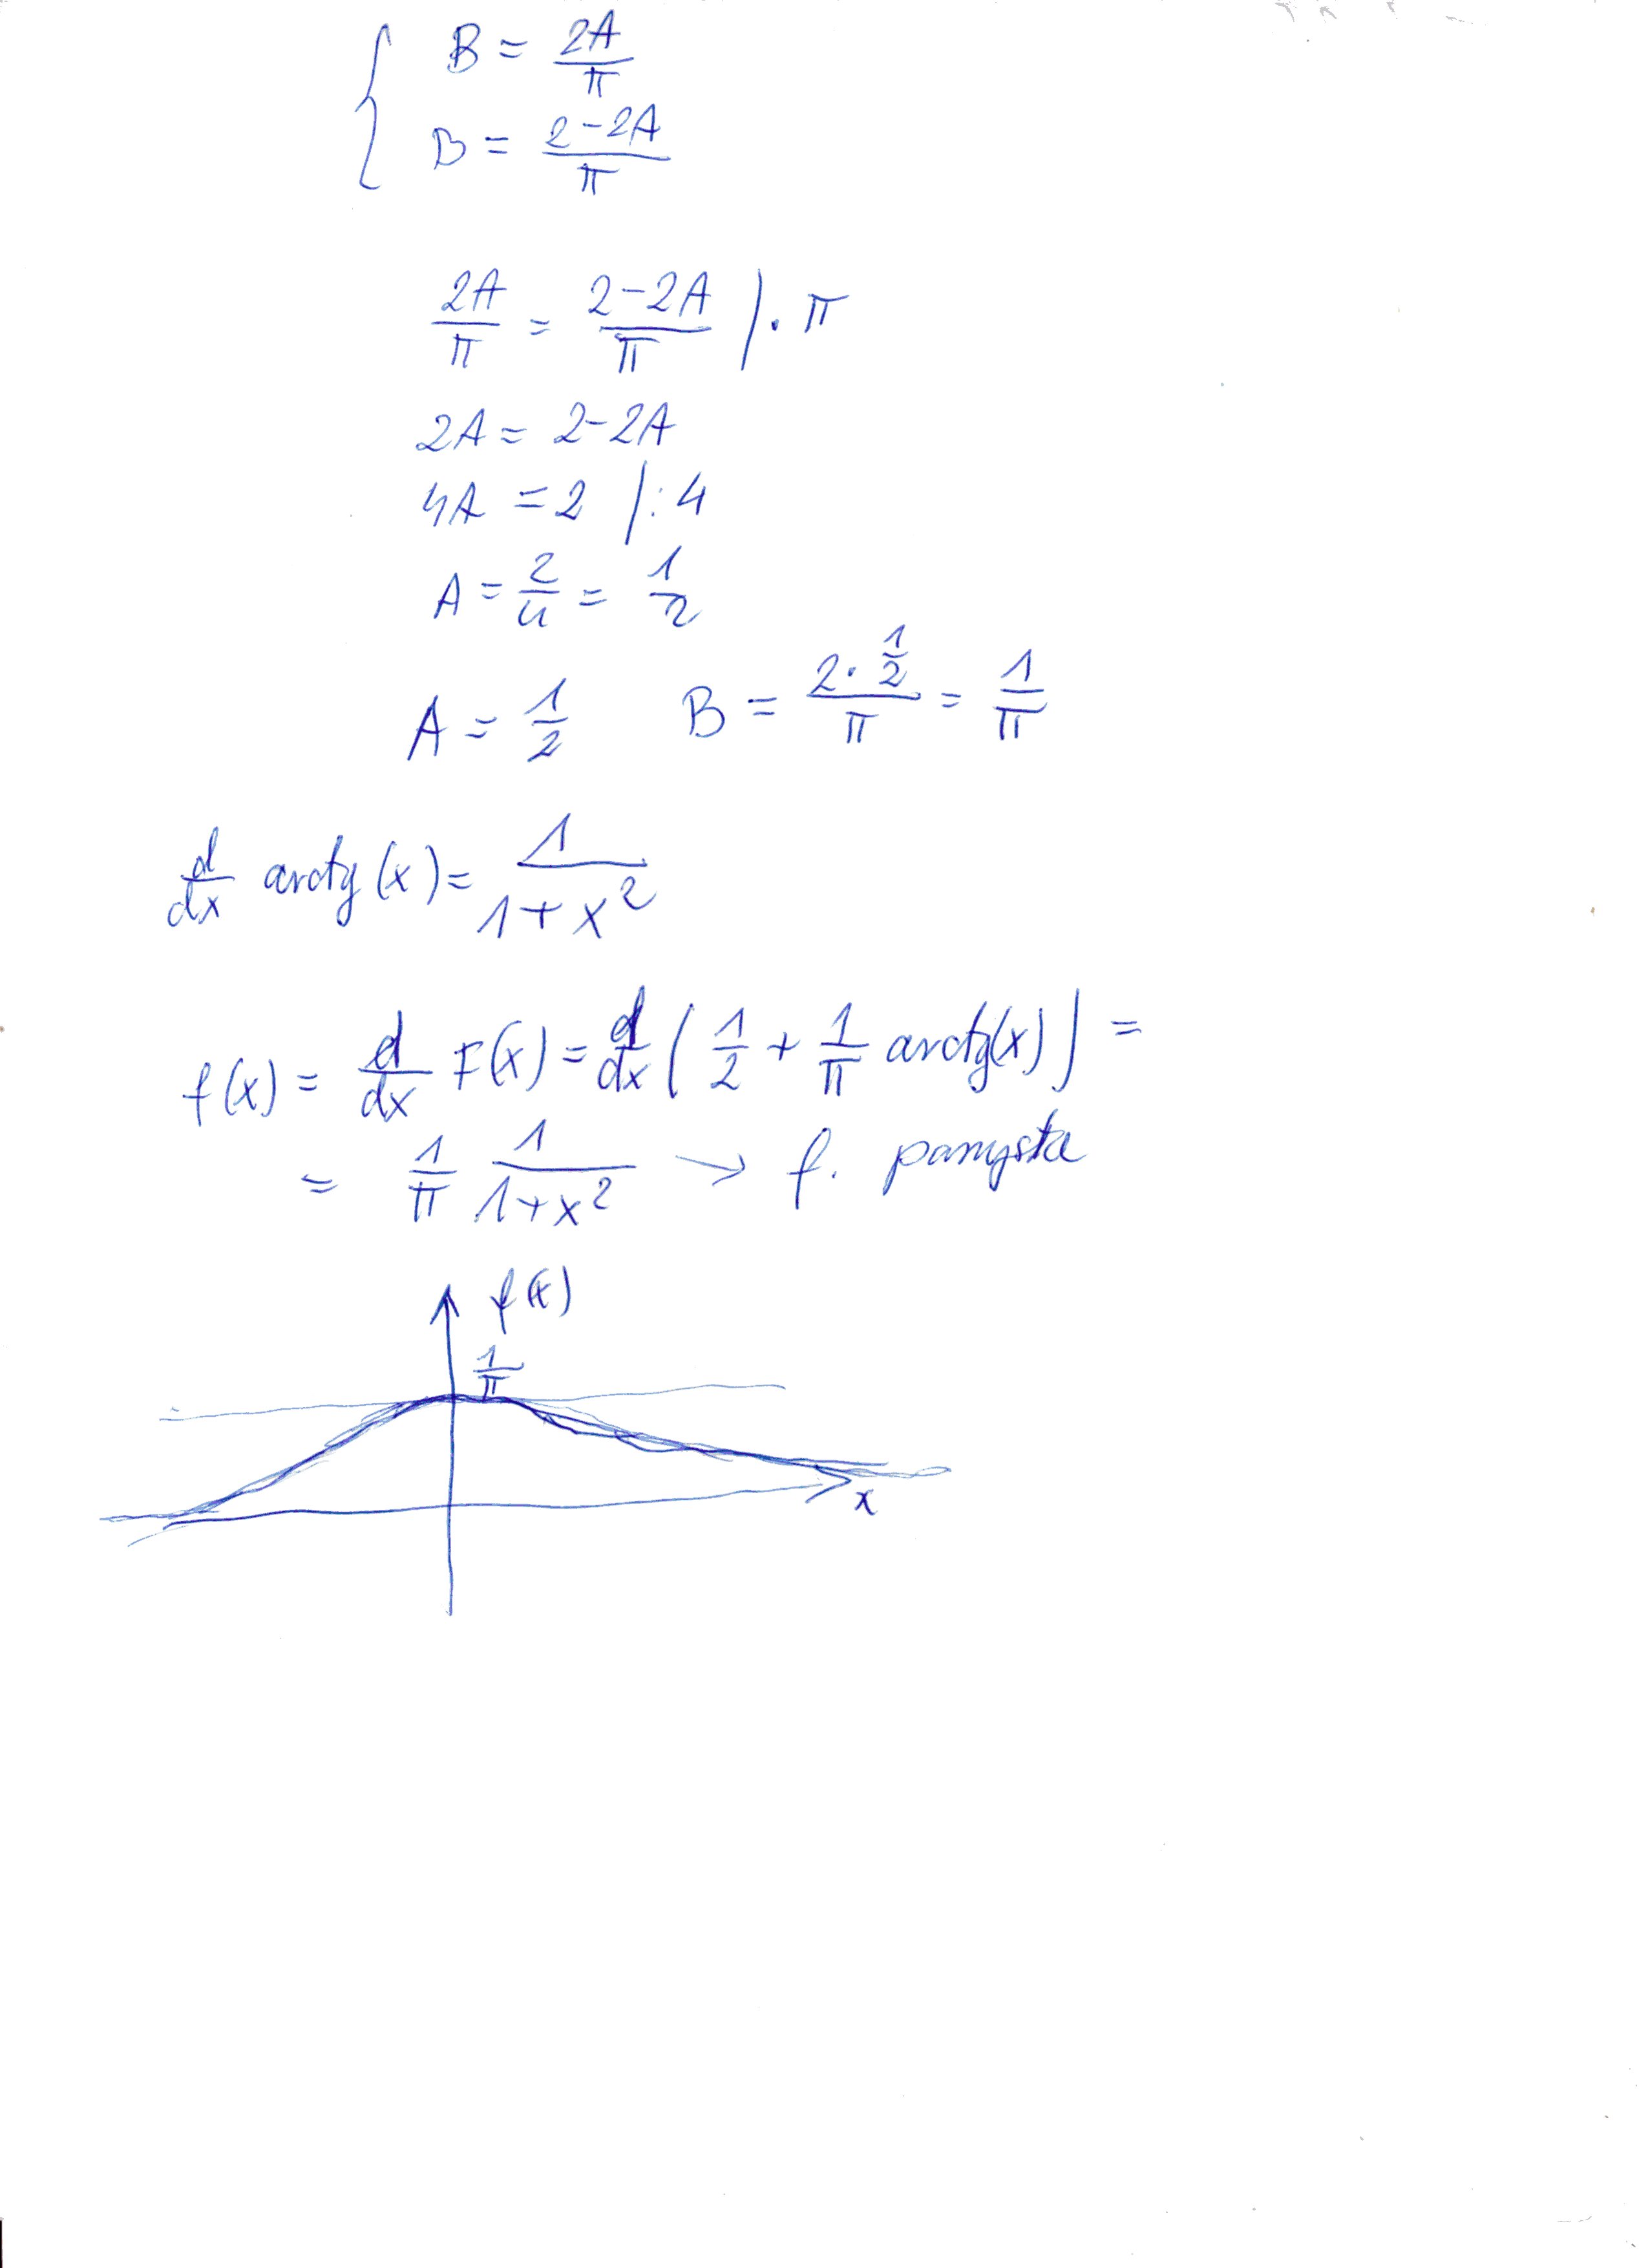 { B = 2A/π
B = 2-2A/π
2A/π = 2-2A/π |·π
2A = 2-2A
4A = 2 |:4
A = 2/4 = 1/2
A = 1/2 B = 2·1/2/π = 1/π
d/dx arctg(x) = 1/1+x²
f(x) = d/dx F(x) = d/dx (1/2 + 1/π arctg(x)) =
= 1/π 1/1+x² → f. parzysta
f(x)
1/π
x